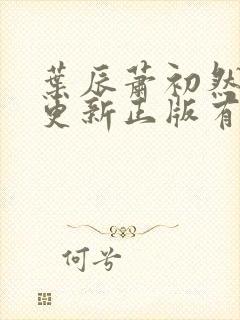 葉辰蕭初然
更新正版有
何兮